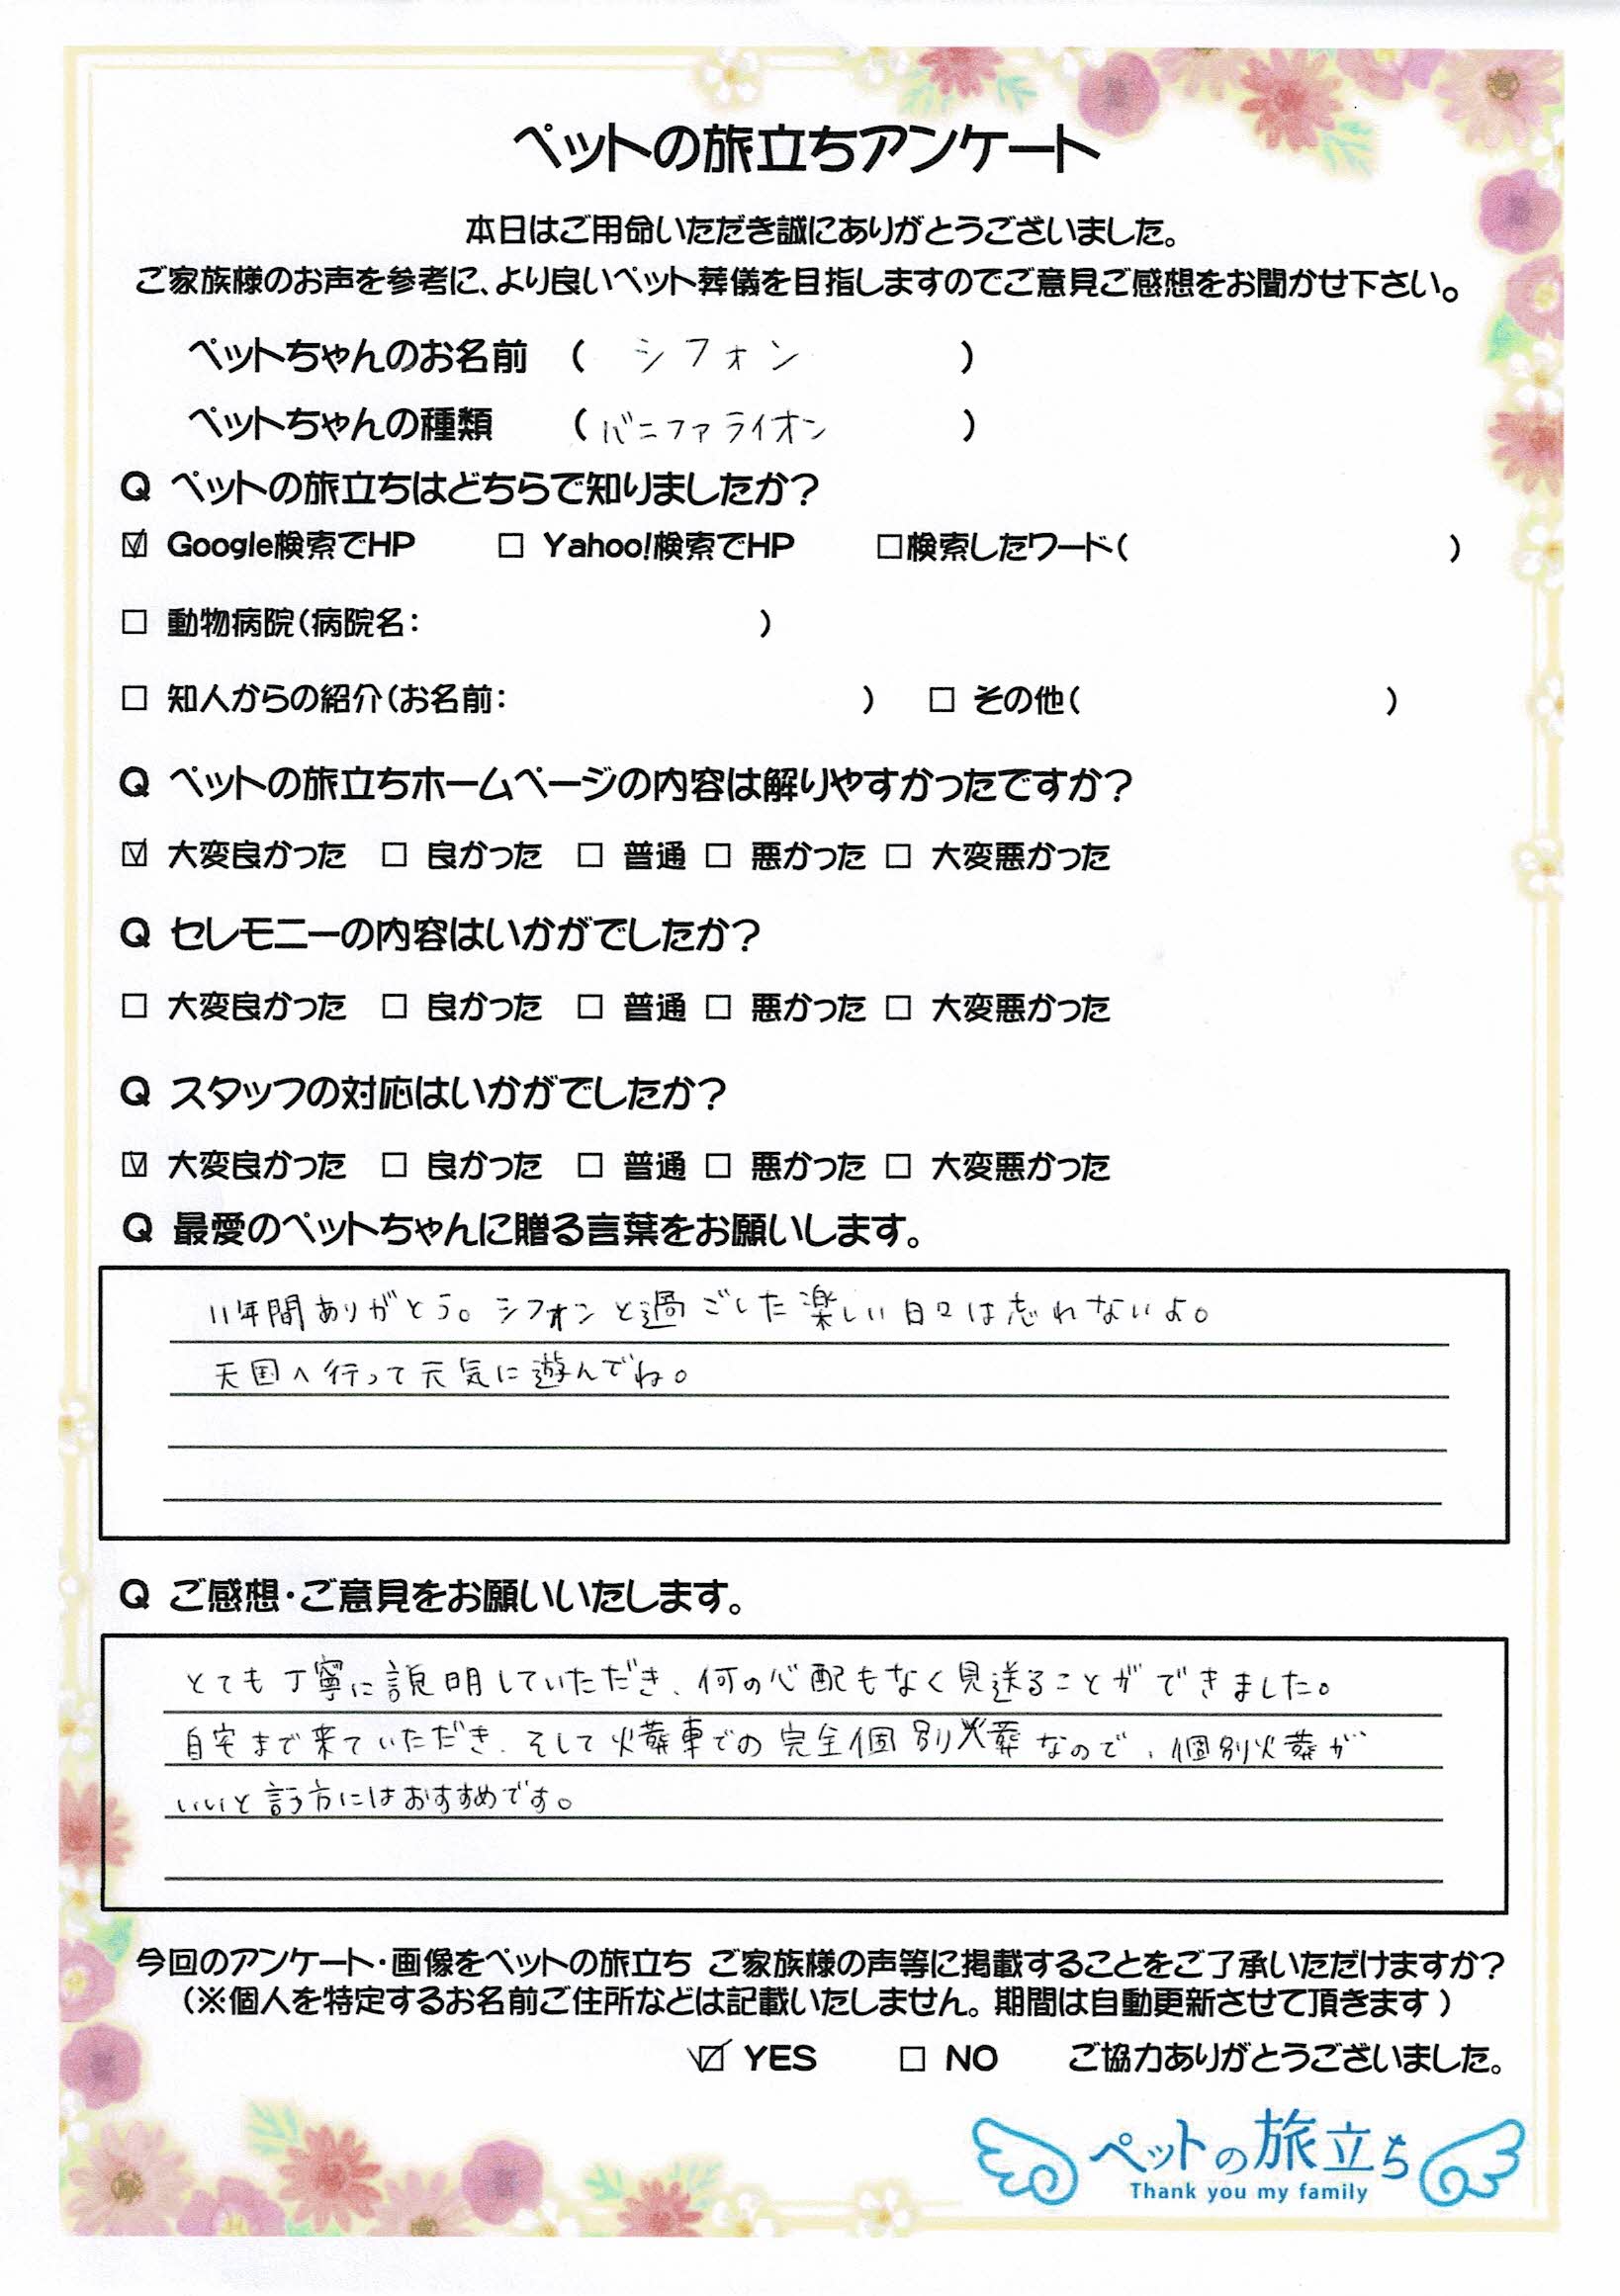 ペットの旅立ちアンケート
本日はご用命いただき誠にありがとうございました。
ご家族様のお声を参考に、より良いペット葬儀を目指しますのでご意見ご感想をお聞かせ下さい。
ペットちゃんのお名前 ( シフォン )
ペットちゃんの種類 ( バニファライオン )
Q ペットの旅立ちはどちらで知りましたか?
☑ Google検索でHP □ Yahoo!検索でHP □検索したワード( )
□ 動物病院(病院名: )
□ 知人からの紹介(お名前: ) □ その他( )
Q ペットの旅立ちホームページの内容は解りやすかったですか?
☑ 大変良かった □ 良かった □ 普通 □ 悪かった □ 大変悪かった
Q セレモニーの内容はいかがでしたか?
□ 大変良かった □ 良かった □ 普通 □ 悪かった □ 大変悪かった
Q スタッフの対応はいかがでしたか?
☑ 大変良かった □ 良かった □ 普通 □ 悪かった □ 大変悪かった
Q 最愛のペットちゃんに贈る言葉をお願いします。
11年間ありがとう。シフォンと過ごした楽しい日々は忘れないよ。
天国へ行って元気に遊んでね。
Q ご感想・ご意見をお願いいたします。
とても丁寧に説明していただき、何の心配もなく見送ることができました。
自宅まで来ていただき、そして火葬車での完全個別火葬なので、個別火葬が
いいと言う方にはおすすめです。
今回のアンケート・画像をペットの旅立ち ご家族様の声等に掲載することをご了承いただけますか?
(※個人を特定するお名前ご住所などは記載いたしません。期間は自動更新させて頂きます)
☑ YES □ NO ご協力ありがとうございました。
ペットの旅立ち
Thank you my family